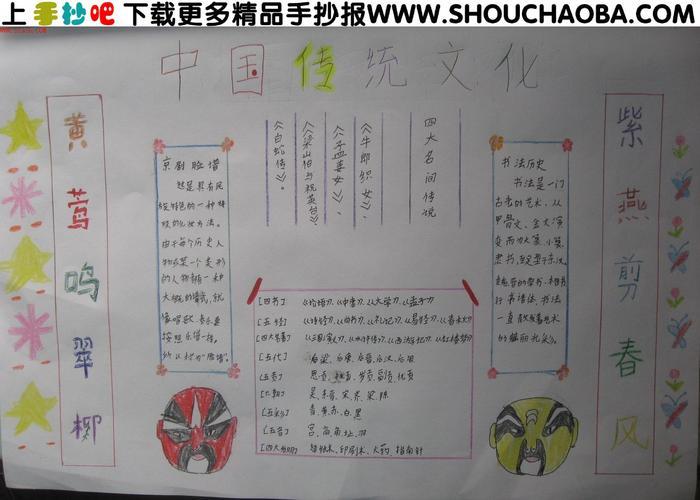 上手抄吧 下载更多精品手抄报WWW.SHOUCHAOBA.COM
中国传统文化
黄莺鸣翠柳
紫燕剪春风
四大民间传说
《牛郎织女》、
《孟姜女》、
《梁山伯与祝英台》、
《白蛇传》。
京剧脸谱
这是具有民
族特色的一种特
殊的化妆方法。
由于每个历史人
物或某一个类型
的人物都有一种
大概的谱式,就
像唱歌、奏乐要
按照乐谱一样,
所以称为“脸谱”。
书法历史
书法是一门
古老的艺术,从
甲骨文、金文演
变而为大篆、小篆、
隶书,至定型于东汉、
行书诸体,书法
一直散发着艺术
[四书] 《论语》、《中庸》、《大学》、《孟子》
[五经] 《诗经》、《尚书》、《礼记》、《易经》、《春秋》
[四大名著] 《三国演义》、《水浒传》、《西游记》、《红楼梦》
[五代] 后梁、后唐、后晋、后汉、后周
[五音]
[六朝] 吴、东晋、宋、齐、梁、陈
[五彩] 青、黄、赤、白、黑
[五音] 宫、商、角、址、羽
[四大发明] 造纸术、印刷术、火药、指南针